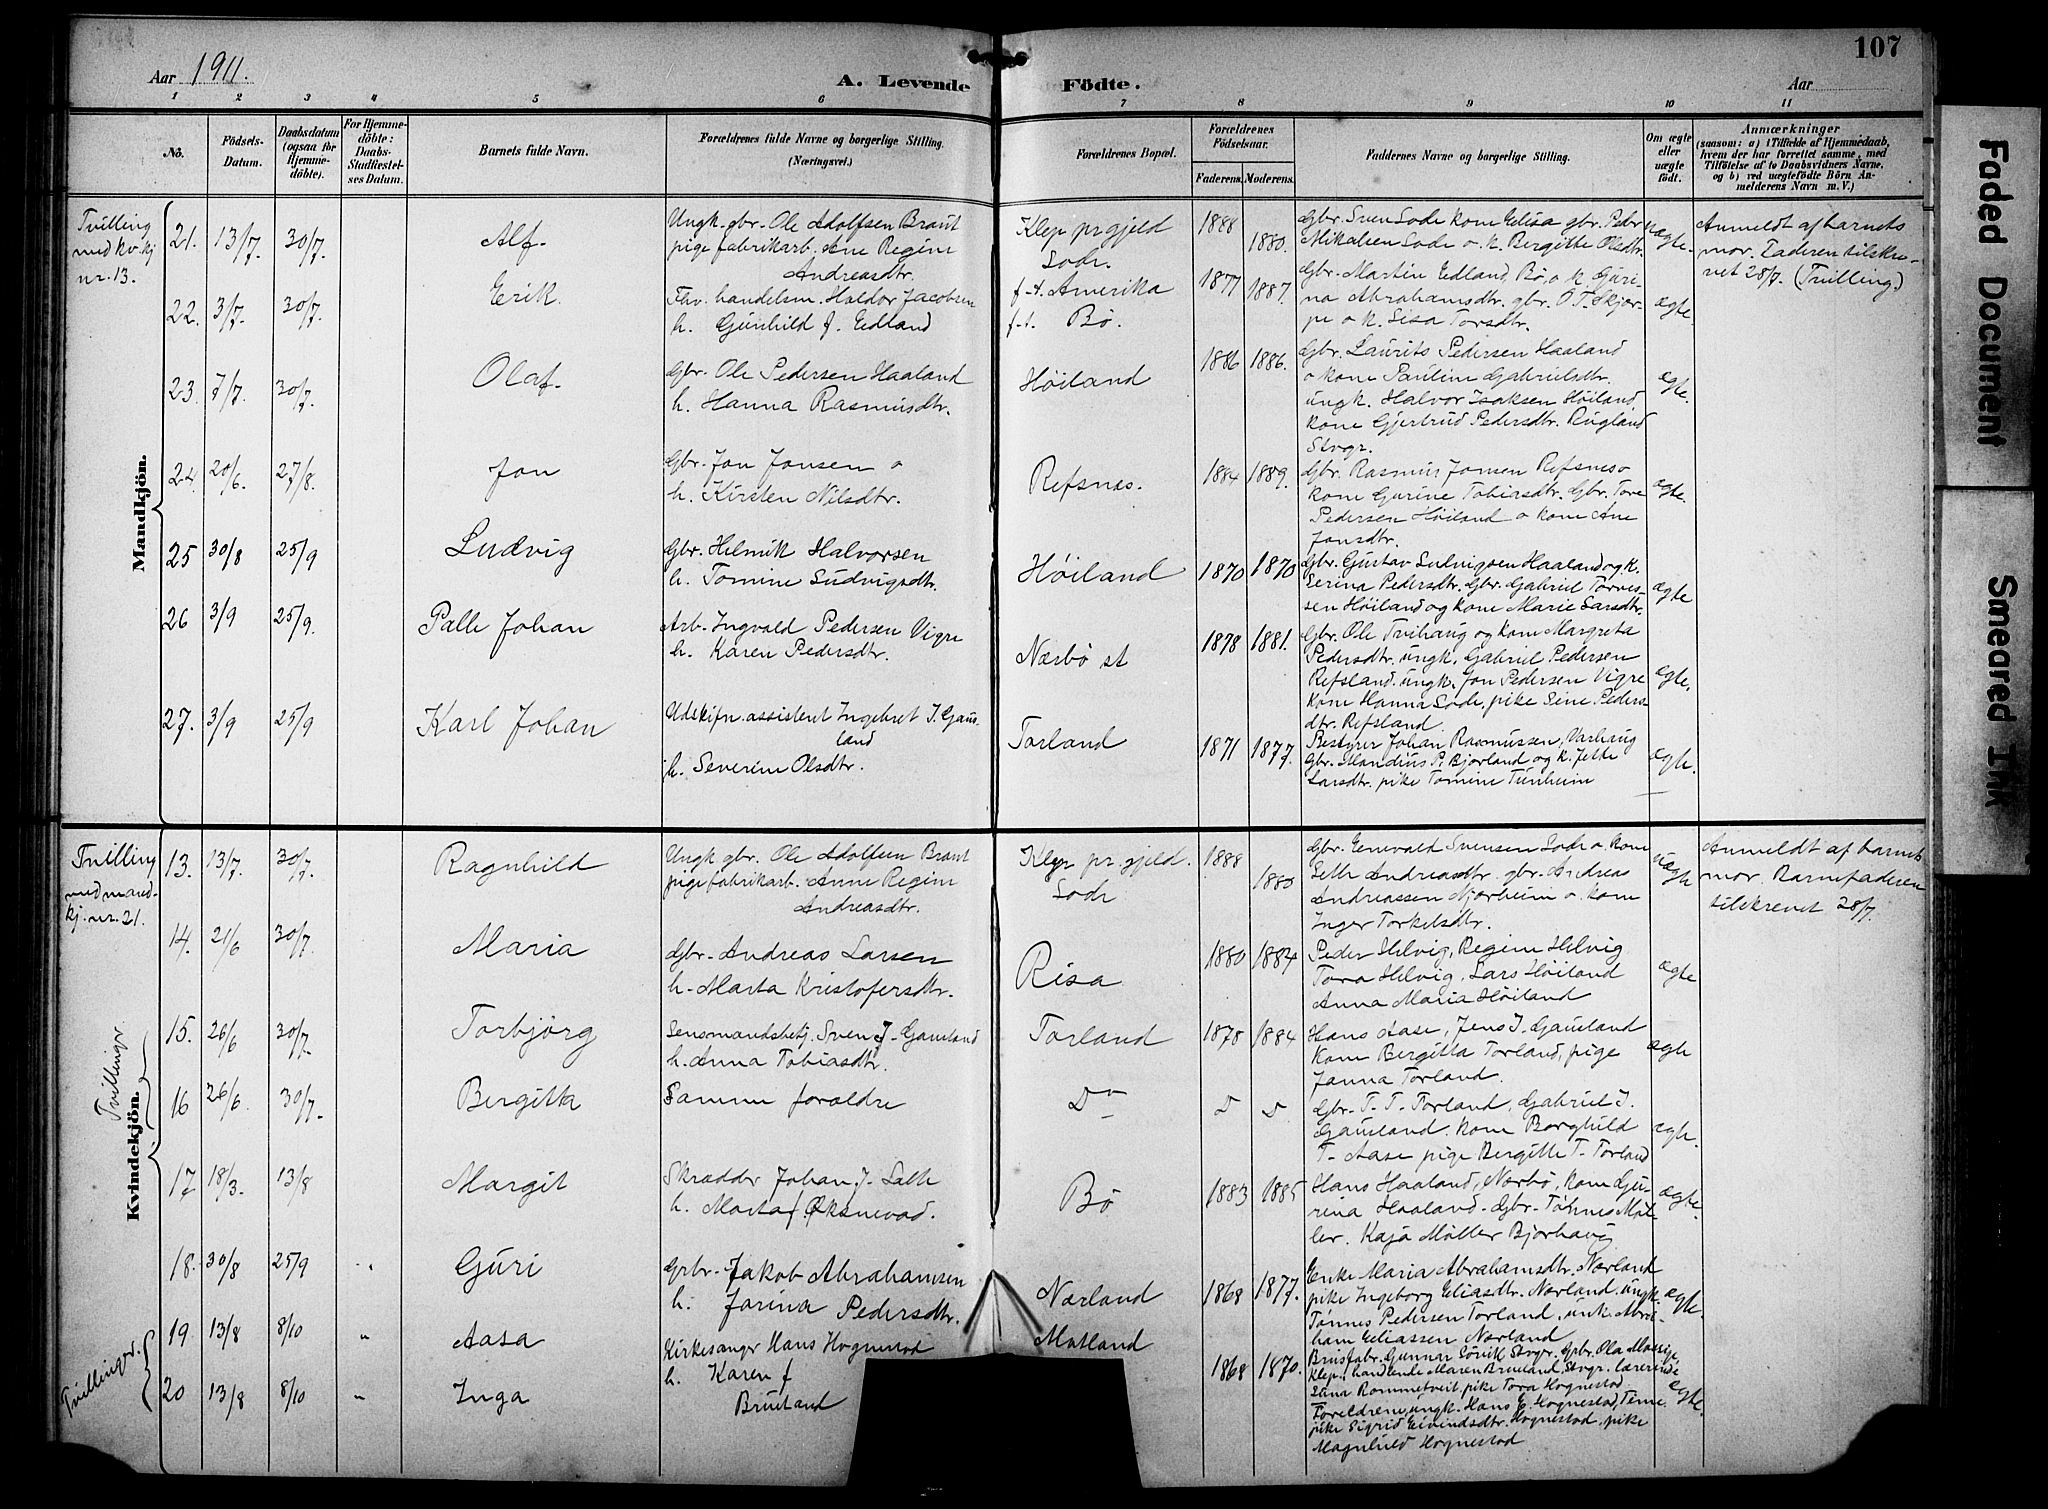 107
Aar 1911.
A. Levende Födte.
Aar
1 2 3 4 5 6 7 8 9 10 11
No.
Födsels-Datum.
Daabsdatum (ogsaa for Hjemme-döbte).
For Hjemme-döbte: Daabs-Stadfæstel-ses Datum.
Barnets fulde Navn.
Forældrenes fulde Navne og borgerlige Stilling. (Næringsvei.)
Forældrenes Bopæl.
Forældrenes Födselsaar.
Faderens. Moderens.
Faddernes Navne og borgerlige Stilling.
Om ægte eller uægte födt.
Anmærkninger
(saasom: a) i Tilfælde af Hjemmedaab, hvem der har forrettet samme, med Tilföielse af to Daabsvidners Navne, og b) ved uægtefödte Börn An-melderens Navn m. V.)
Mandkjön.
Tvilling
med kv.kj
nr. 13.
21. 13/7. 30/7. Alf.
Ungk. gbr. Ole Adolfsen Braut
pige fabrikarb. Ane Regine
Andreasdtr.
Klep prgjeld
Lode.
1888 1880.
Gbr. Sven Lode kone Elisa gbr. Peder
Mikalsen Lode o. k. Bergitte Olsdtr.
uægte.
Anmeldt af barnets
mor. Faderen tilskre-
vet 28/7. (Tvilling.)
22. 3/7. 30/7. Erik.
Fhv. handelsm. Haldor Jacobsen
h. Gunhild f. Edland
f.t. Amerika
f.t. Bø.
1877 1887.
Gbr. Martin Edland, Bø, o k Guri-
na Abrahamsdtr. gbr. O. T. Skjær-
pe o k. Lisa Torsdtr.
ægte.
23. 7/7. 30/7. Olaf.
Gbr. Ole Pedersen Haaland
h. Hanna Rasmusdtr.
Høiland
1886 1886.
Gbr. Laurits Pedersen Haaland
o kone Pauline Gabrielsdtr.
ungk. Halvor Isaksen Høiland
kone Gjertrud Pedersdtr. Rugland
Stvgr.
ægte.
24. 20/6. 27/8. Jon
Gbr. Jon Jonsen o
h. Kirsten Nilsdtr.
Refsnes.
1884 1889.
Gbr. Rasmus Jonsen Refsnes o
kone Gurine Tobiasdtr. Gbr. Tore
Pedersen Høiland o kone Ane
Jonsdtr.
ægte.
25 30/8 25/9 Ludvig
Gbr. Helmik Halvorsen
h. Tomine Ludvigsdtr.
Høiland
1870 1870
Gbr. Gustav Ludvigsen Haaland og k.
Serina Pedersdtr. Gbr. Gabriel Tønnes-
sen Høiland og kone Marie Larsdtr.
ægte
26 3/9 25/9. Palle Johan
Arb. Ingvald Pedersen Vigre
h. Karen Pedersdtr.
Nærbø st
1878 1881.
Gbr. Ole Tvihaug og kone Margreta
Pedersdtr. ungk. Gabriel Pedersen
Refsland. ungk. Jon Pedersen Vigre
kone Hanna Lode, pike Sine Peders-
dtr. Refsland
ægte.
27. 3/9 25/9 Karl Johan
Udskiftn. assistent Ingebret J. Gaus-
land
h. Severine Olsdtr.
Torland
1871 1877.
Bestyrer Johan Rasmussen, Varhaug
Gbr. P. Bjorland og k. Jette
Larsdtr. pike Tomine Tunheim
ægte.
Kvindekjön.
Tvilling
med mand-
kj. nr. 21.
13. 13/7. 30/7. Ragnhild
Ungk gbr. Ole Adolfsen Braut
pige fabrikarb. Anne Regine
Andreasdtr.
Klep pr. gjeld.
Lode
1888 1880
Gbr. Enevald Svensen Lode o. kone
Andreasdtr. gbr. Andreas
Andreassen Njorheim o. kone
Inger Torkelsdtr.
uægte
Anmeldt af barnets
mor. Barnefaderen
tilskrevet 28/7.
14. 21/6 30/7. Maria
Gbr. Andreas Larsen
h. Marta Kristofersdtr.
Risa
1880 1884
Peder Helvig, Regine Helvig
Tora Helvig, Lars Høiland
Anna Maria Høiland
ægte
Tvillinger
15. 26/6 30/7. Torbjörg
Lensmandsbetj. Sven J. Gausland
h. Anna Tobiasdtr.
Torland
1878 1884
Hans Aase, Jens J. Gausland
Kone Bergitta Torland, pige
Janna Torland.
ægte
16 26/6. 30/7. Bergitta
Samme foræld­re
Do
Gbr. T. T. Torland, Gabriel J.
Gausland, kone Borghild
T. Aase pige Bergitte T. Torland
ægte.
17 18/3. 13/8 Margit
Skrædder Johan J. Salte
h. Marta f. Øksnevad.
Bø
1883 1885
Hans Haaland, Nærbø, kone Gu-
rina Haaland. Gbr. Tønnes Møl-
ler. Kaja Møller Bjorhaug
ægte.
18. 30/8 25/9 Guri
Grbr. Jakob Abrahamsen
h. Jorina Pedersdtr.
Nærland
1868 1877.
Enke Maria Abrahamsdtr. Nærland
pike Ingeborg Eliasdtr. Nærland. ungk.
Tønnes Pedersen Torland, unk. Abra-
ham Eliassen Nærland
ægte.
Tvillinger.
19 13/8 8/10 " Aasa
Kirkesanger Hans Hognestad
h. Karen f
Bruland
Motland
1868 1870.
20 13/8 8/10 " Inga
Brusfabr. Gunnar Sørvik Stvgr. Grbr. Ola
Klep, handlende Maren Bruland Stvgr. lærerinde
Rommetveit. pike Tora Hognestad
Foreldrene, ungk. Hans E. Hognestad, Time
pike Sigrid Eivindsdtr. Hognestad, pike
Magnhild Hognestad
ægte.
Faded Document
Smeared Ink